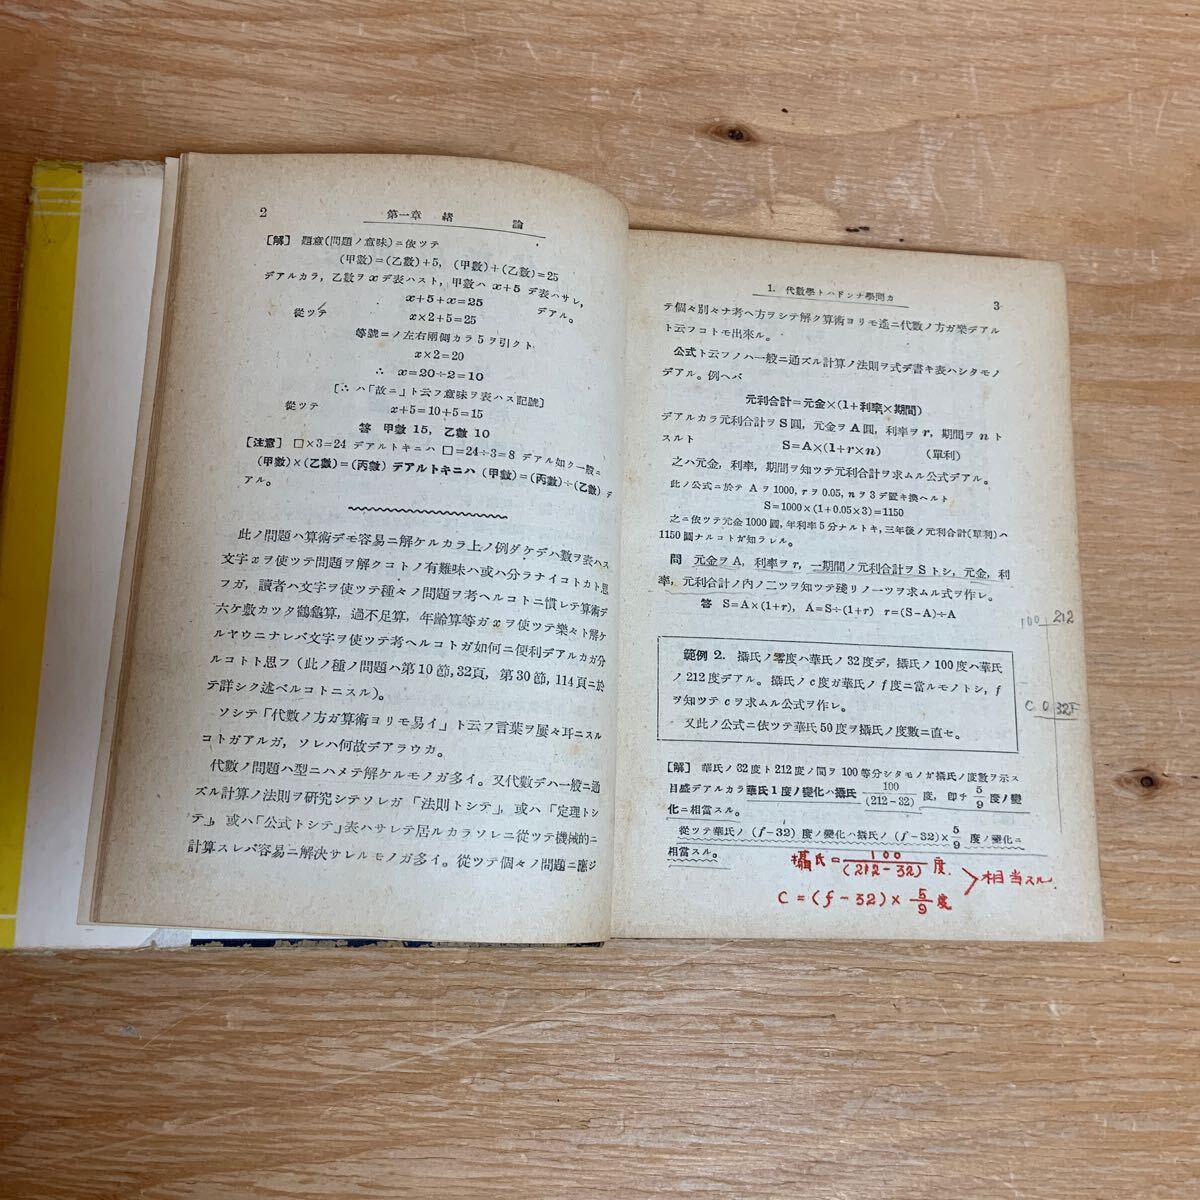 2
第一章 緒 論
[解] 題意(問題ノ意味)ニ依ツテ
(甲數)=(乙數)+5, (甲數)+(乙數)=25
デアルカラ, 乙數ヲxデ表ハスト, 甲數ハ x+5 デ表ハサレ,
x+5+x=25 デアル。
從ツテ x×2+5=25
等號=ノ左右兩側カラ 5 ヲ引クト
x×2=20
∴ x=20÷2=10
[∴ ハ「故ニ」ト云フ意味ヲ表ハス記號]
從ツテ x+5=10+5=15
答 甲數 15, 乙數 10
[注意] □×3=24 デアルトキニハ □=24÷3=8 デアル如ク一般ニ
(甲數)×(乙數)=(丙數) デアルトキニハ (甲數)=(丙數)÷(乙數) デ
アル。
此ノ問題ハ算術デモ容易ニ解ケルカラ上ノ例ダケデハ數ヲ表ハス
文字xヲ使ツテ問題ヲ解クコトノ有難味ハ或ハ分ラナイコトカト思
フガ, 讀者ハ文字ヲ使ツテ種々ノ問題ヲ考ヘルコトニ慣レテ算術デ
六ケ敷カツタ鶴龜算, 過不足算, 年齡算等ガxヲ使ツテ樂々ト解ケ
ルヤウニナレバ文字ヲ使ツテ考ヘルコトガ如何ニ便利デアルカガ分
ルコトト思フ(此ノ種ノ問題ハ第10節, 32頁, 第30節, 114頁ニ於
テ詳シク述ベルコトニスル)。
ソシテ「代數ノ方ガ算術ヨリモ易イ」ト云フ言葉ヲ屢々耳ニスル
コトガアルガ, ソレハ何故デアラウカ。
代數ノ問題ハ型ニハメテ解ケルモノガ多イ。又代數デハ一般ニ通
ズル計算ノ法則ヲ研究シテソレガ「法則トシテ」, 或ハ「定理トシ
テ」, 或ハ「公式トシテ」表ハサレテ居ルカラソレニ從ツテ機械的ニ
計算スレバ容易ニ解決サレルモノガ多イ。從ツテ個々ノ問題ニ應ジ
1. 代數學トハドンナ學問カ 3
テ個々別々ナ考ヘ方ヲシテ解ク算術ヨリモ遙ニ代數ノ方ガ樂デアル
ト云フコトモ出來ル。
公式ト云フノハ一般ニ通ズル計算ノ法則ヲ式デ書キ表ハシタモノ
デアル。例ヘバ
元利合計=元金×(1+利率×期間)
デアルカラ元利合計ヲS圓, 元金ヲA圓, 利率ヲr, 期間ヲnト
スルト S=A×(1+r×n) (單利)
之ハ元金, 利率, 期間ヲ知ツテ元利合計ヲ求ムル公式デアル。
此ノ公式ニ於テ A ヲ 1000, r ヲ 0.05, n ヲ 3 デ置キ換ヘルト
S=1000×(1+0.05×3)=1150
之ニ依ツテ元金 1000 圓, 年利率 5 分ナルトキ, 三年後ノ元利合計(單利)ハ
1150 圓ナルコトガ知ラレル。
問 元金ヲA, 利率ヲr, 一期間ノ元利合計ヲSトシ, 元金, 利
率, 元利合計ノ内ノ二ツヲ知ツテ殘リノ一ツヲ求ムル式ヲ作レ。
答 S=A×(1+r), A=S÷(1+r) r=(S-A)÷A
100 212
C 0 32F
範例 2. 攝氏ノ零度ハ華氏ノ32度デ, 攝氏ノ100度ハ華氏
ノ212度デアル。攝氏ノc度ガ華氏ノf度ニ當ルモノトシ, f
ヲ知ツテcヲ求ムル公式ヲ作レ。
又此ノ公式ニ依ツテ華氏50度ヲ攝氏ノ度數ニ直セ。
[解] 華氏ノ 32 度ト 212 度ノ間ヲ 100 等分シタモノガ攝氏ノ度數ヲ示ス
目盛デアルカラ華氏 1 度ノ變化ハ攝氏 100/(212-32) 度, 卽チ 5/9 度ノ變
化ニ相當スル。
從ツテ華氏ノ (f-32) 度ノ變化ハ攝氏ノ (f-32)×5/9 度ノ變化ニ
相當スル。
攝氏=100/(212-32)度.
C=(f-32)×5/9度
相当スル